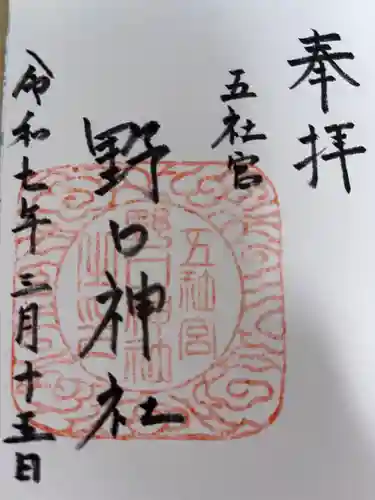 奉拝
五社宮
野口神社
令和七年三月十五日
五社宮
野口神社